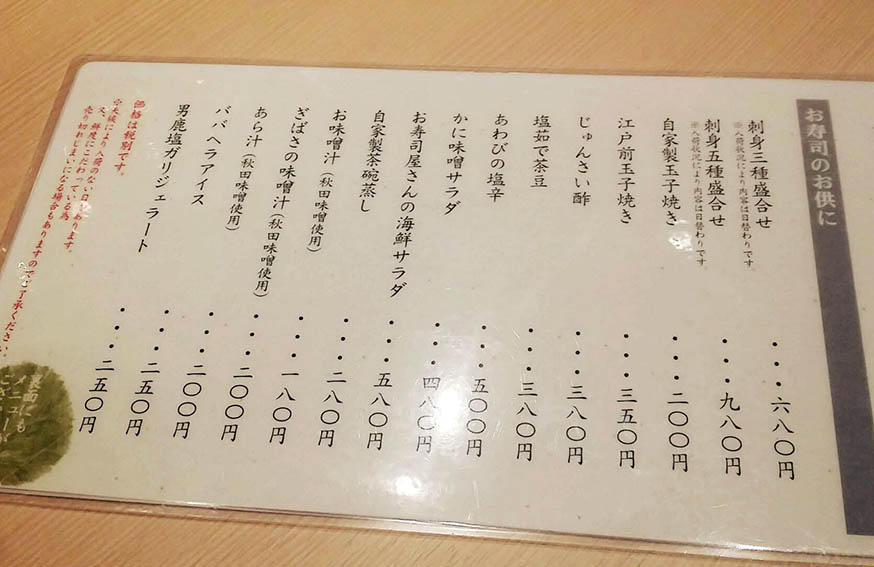 お寿司のお供に
刺身三種盛合せ・・・六八〇円
※入荷状況により内容は日替わりです。
刺身五種盛合せ・・・九八〇円
※入荷状況により内容は日替わりです。
自家製玉子焼き・・・二〇〇円
江戸前玉子焼き・・・三五〇円
じゅんさい酢・・・三八〇円
塩茹で茶豆・・・三八〇円
あわびの塩辛・・・五〇〇円
かに味噌サラダ・・・四八〇円
お寿司屋さんの海鮮サラダ・・・五八〇円
自家製茶碗蒸し・・・二八〇円
お味噌汁(秋田味噌使用)・・・一八〇円
ぎばさの味噌汁(秋田味噌使用)・・・二〇〇円
あら汁(秋田味噌使用)・・・二〇〇円
ババヘラアイス・・・二五〇円
男鹿塩ガリジェラート・・・二五〇円
価格は税別です。
により入荷のない日もあります。
又、鮮度にこだわっている為
売り切れじまいになる場合もありますのでご了承ください。
裏面にも
メニューが